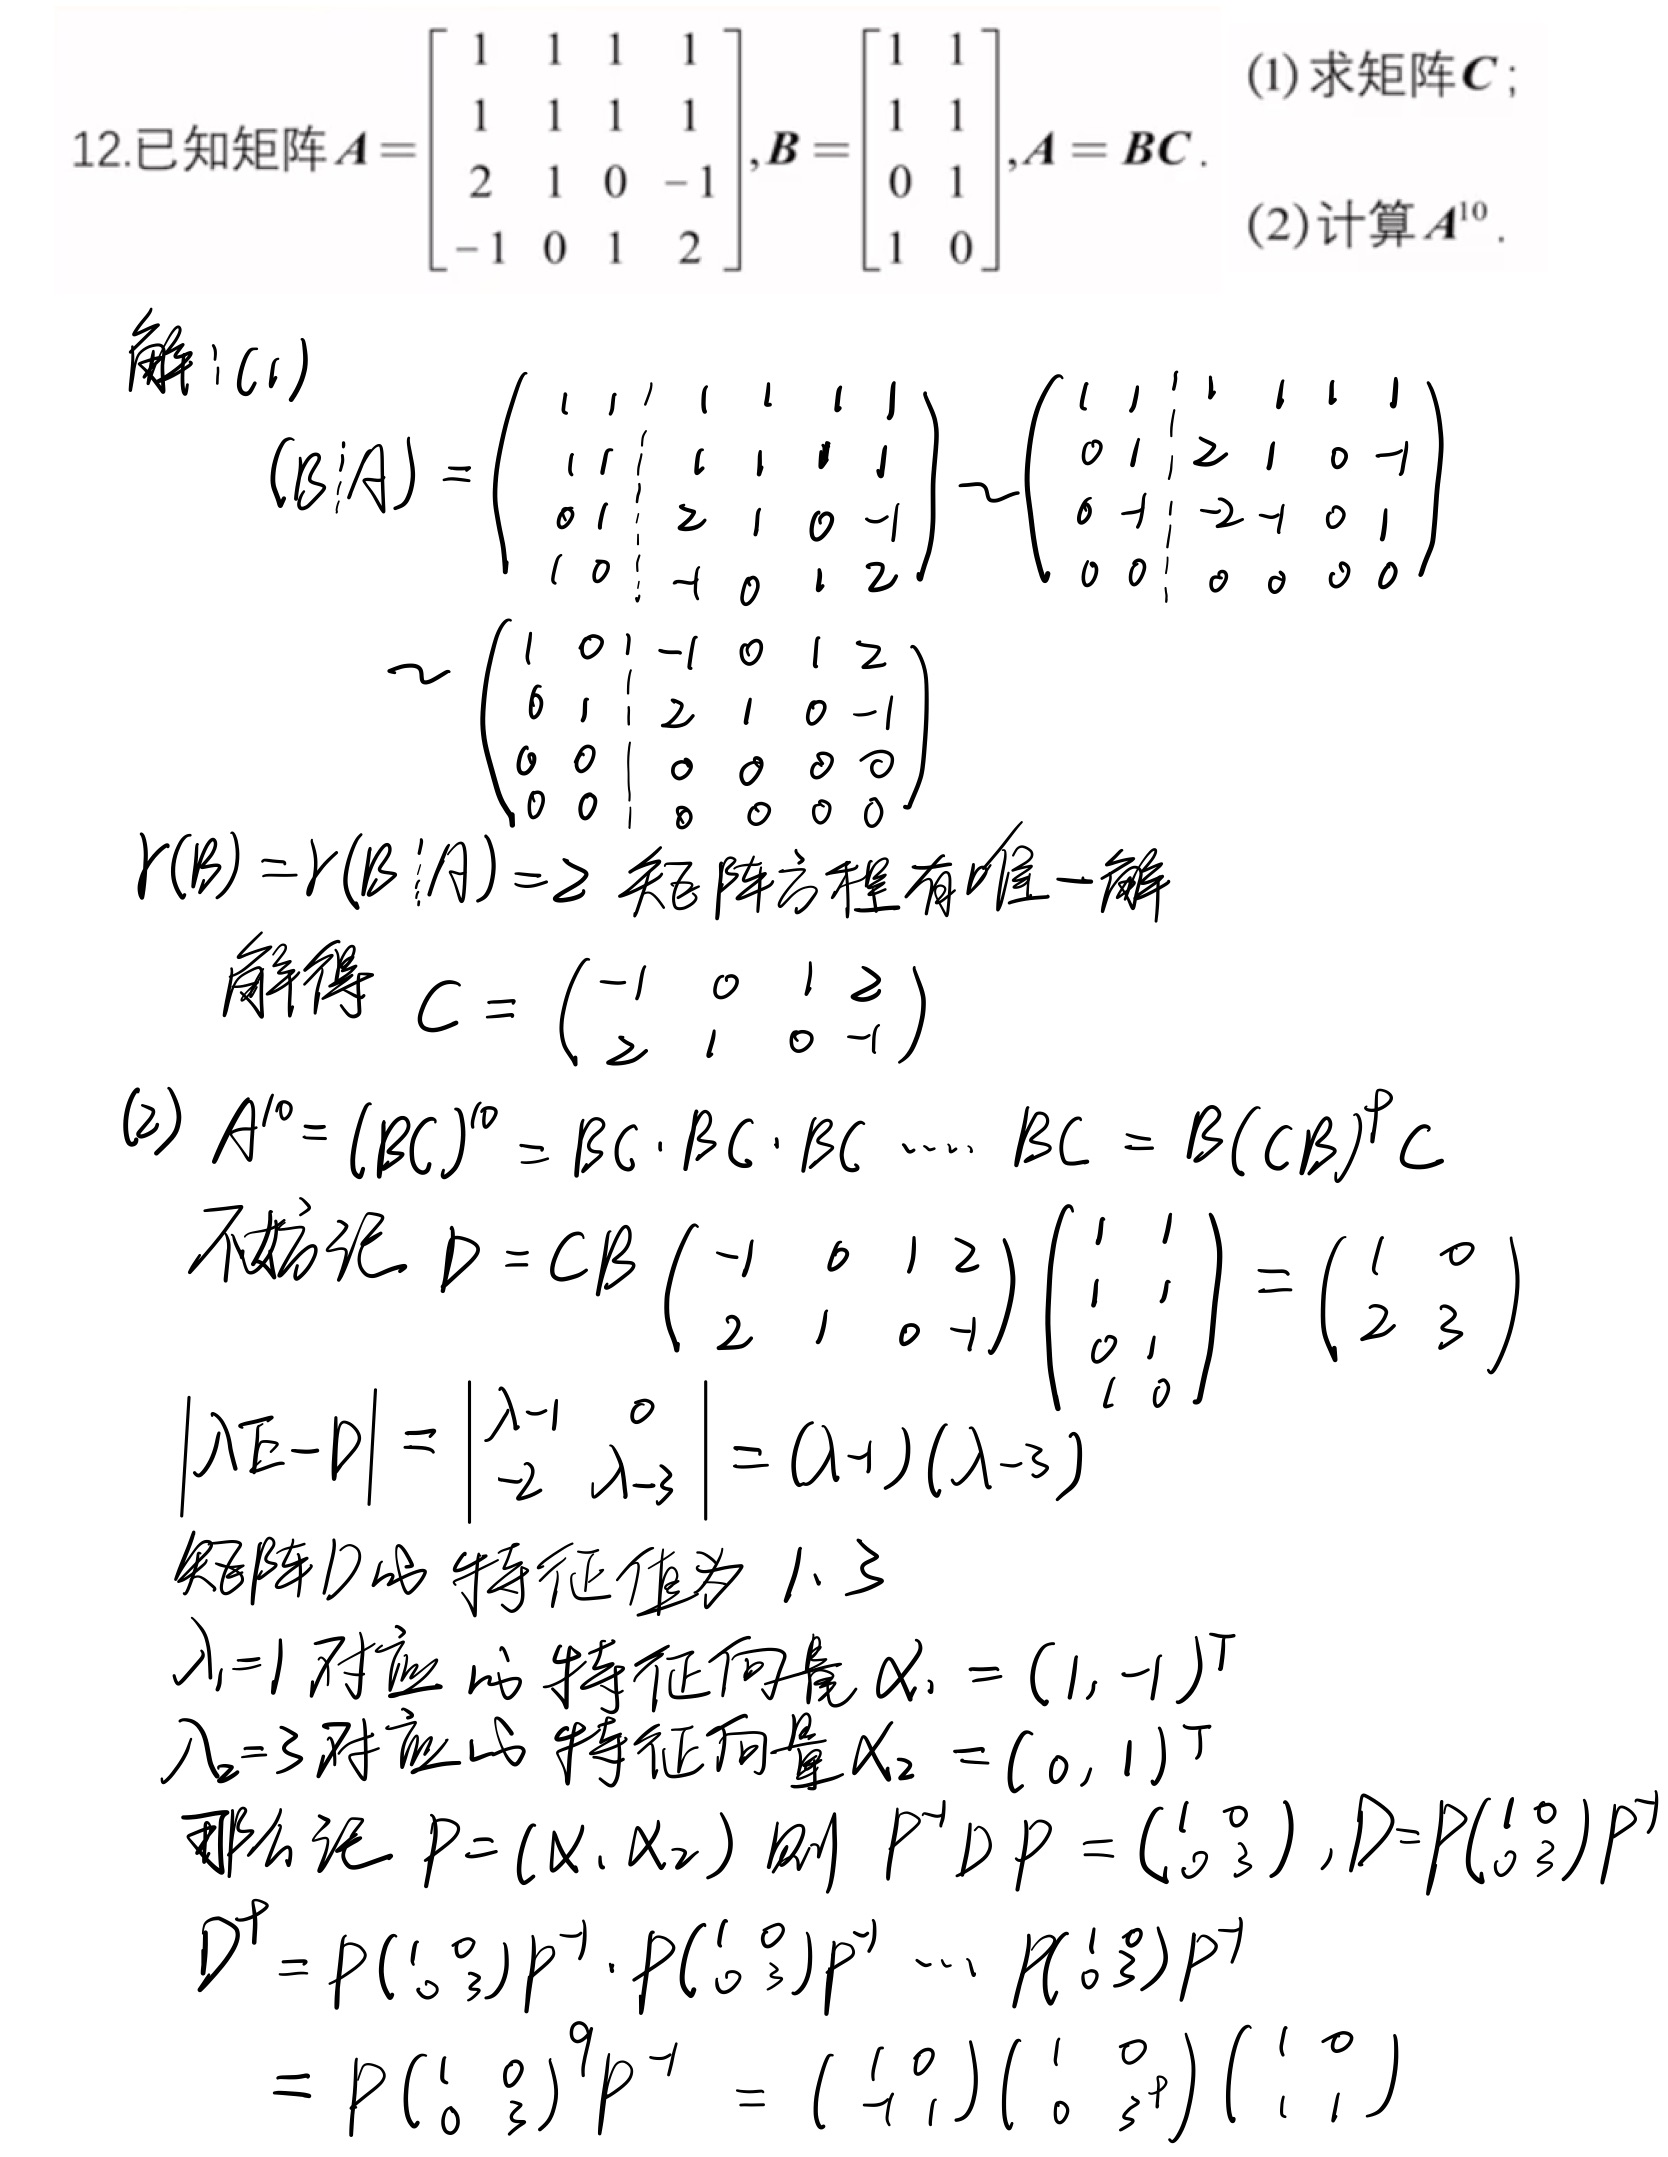 12.已知矩阵 A = [1 1 1 1; 1 1 1 1; 2 1 0 -1; -1 0 1 2], B = [1 1; 1 1; 0 1; 1 0], A = BC.
(1) 求矩阵 C;
(2) 计算 A^10.
解:(1)
(B⋮A) = (1 1 ⋮ 1 1 1 1; 1 1 ⋮ 1 1 1 1; 0 1 ⋮ 2 1 0 -1; 1 0 ⋮ -1 0 1 2) ~ (1 1 ⋮ 1 1 1 1; 0 1 ⋮ 2 1 0 -1; 0 -1 ⋮ -2 -1 0 1; 0 0 ⋮ 0 0 0 0)
~ (1 0 ⋮ -1 0 1 2; 0 1 ⋮ 2 1 0 -1; 0 0 ⋮ 0 0 0 0; 0 0 ⋮ 0 0 0 0)
r(B) = r(B⋮A) = 2 矩阵方程有唯一解
解得 C = (-1 0 1 2; 2 1 0 -1)
(2) A^10 = (BC)^10 = BC·BC·BC ···· BC = B(CB)^9 C
不妨记 D = CB (-1 0 1 2; 2 1 0 -1)(1 1; 1 1; 0 1; 1 0) = (1 0; 2 3)
|λE-D| = |λ-1 0; -2 λ-3| = (λ-1)(λ-3)
矩阵D的特征值为 1、3
λ₁=1 对应的特征向量 α₁ = (1, -1)^T
λ₂=3 对应的特征向量 α₂ = (0, 1)^T
那么记 P=(α₁ α₂) 则 P^-1 D P = (1 0; 0 3), D=P(1 0; 0 3)P^-1
D^9 = P(1 0; 0 3)P^-1·P(1 0; 0 3)P^-1 ··· P(1 0; 0 3)P^-1
= P(1 0; 0 3)^9 P^-1 = (1 0; -1 1)(1 0; 0 3^9)(1 0; 1 1)